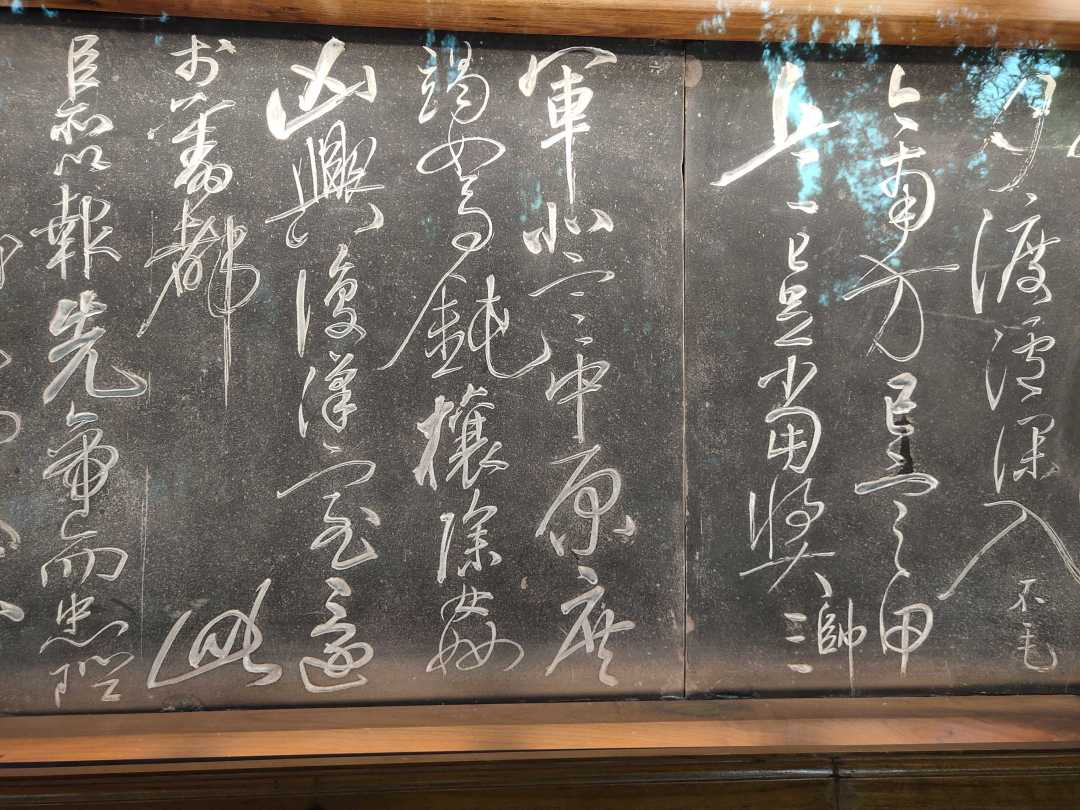 月渡瀘深入不毛
今南方已定甲
兵已足當獎帥三
軍北定中原庶
竭駑鈍攘除姦
凶興復漢室還
於舊都此
臣所以報先帝而忠陛